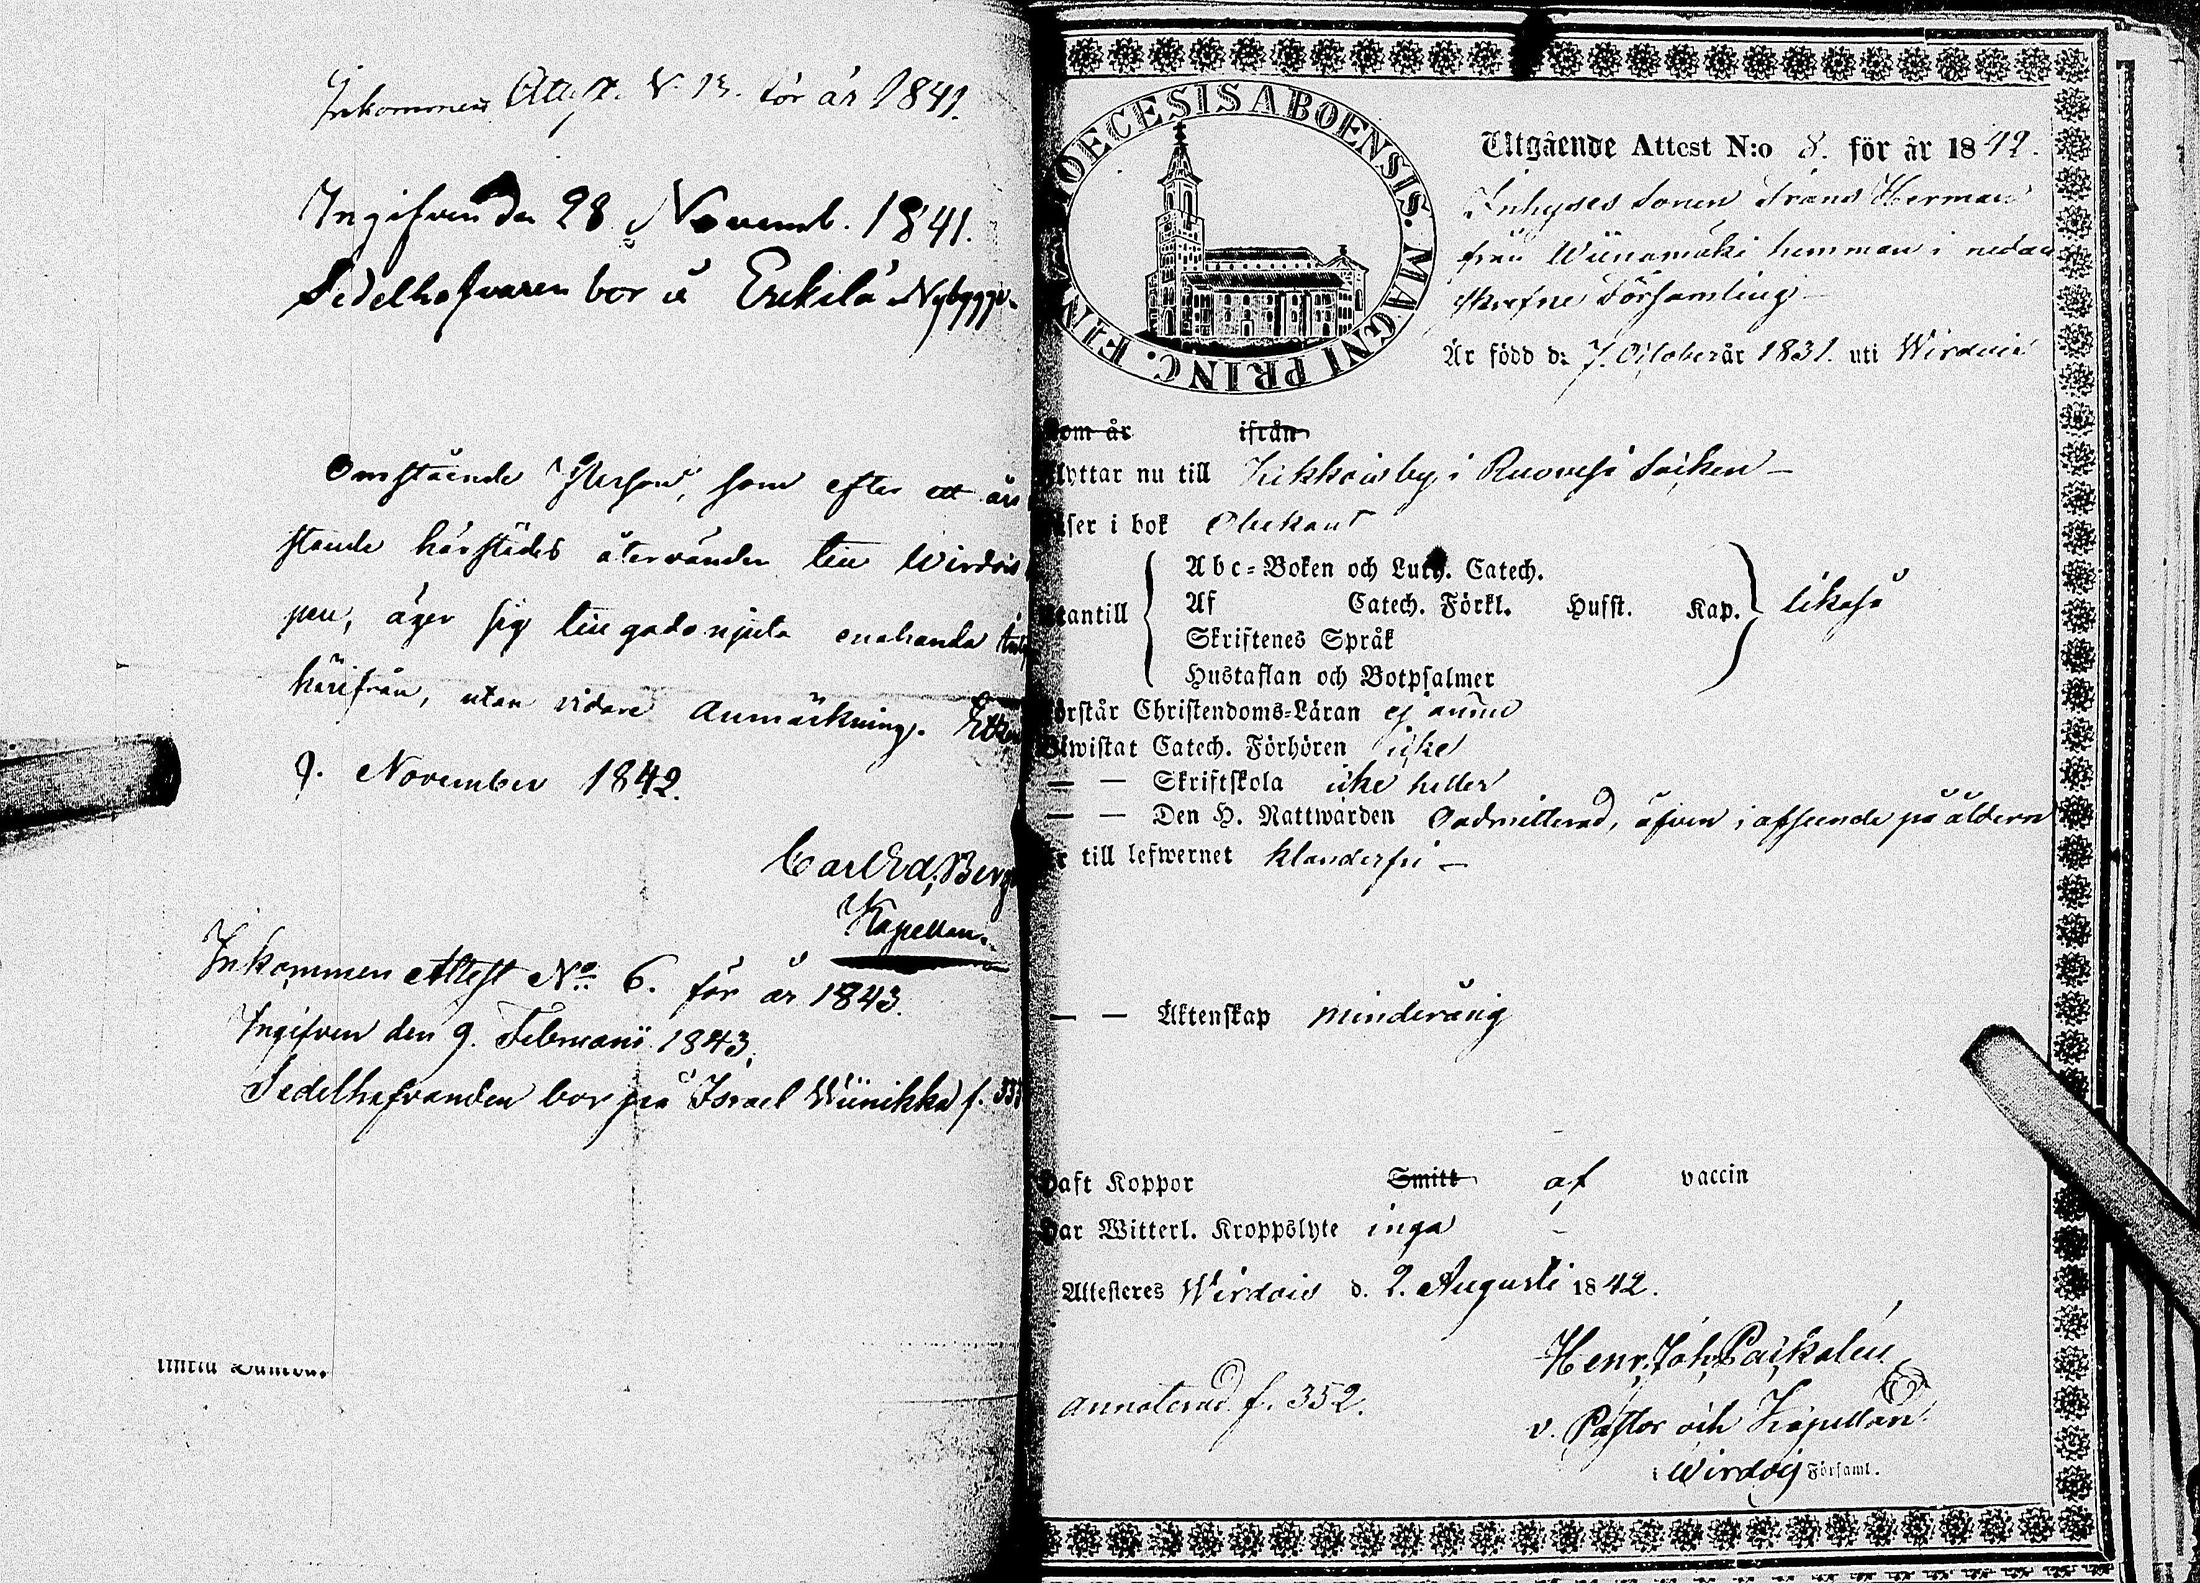 Inkommen Attest N. 13. för år 1841.
Ingifven den 28 Novemb. 1841.
Sedelhafvaren bor å Erkilä Nybygge.
Omstående Person, som efter ett års
stande härstädes återvänder till Wirdois
pen, äger sig till godo njuta enahanda
härifrån, utan vidare anmärkning.
d. November 1842.
Carl Ed. Berg
Kapellan.
Inkommen Attest No. 6. för år 1843.
Ingifven den 9. Februarii 1843.
Sedelhafvanden bor på Israel Wiinikka f. 33
DIOECESIS ABOENSIS. MAGNI PRINC. FIN
Utgående Attest N:o 8. för år 1842.
Inhyses Sonen Frans Herman
från Wiinamäki hemman i nedan
skrefne Församling
Är född d: 7. October år 1831. uti Wirdois
som år ifrån
flyttar nu till i Ruovesi Socken
läser i bok Obekant
utantill
Abc-Boken och Luth. Catech.
Af Catech. Förkl. Husst. Kap. likaså
Skriftenes Språk
Hustaflan och Botpsalmer
förstår Christendoms-Läran ej ännu
Biwistat Catech. Förhören icke
— — Skriftskola icke heller
— — Den H. Nattwarden oadmitterad, äfven i afseende på åldern
är till lefwernet klanderfri
— — Äktenskap minderårig
Haft Koppor Smitt af vaccin
Har Witterl. Kroppslyte inga
Attesteres Wirdois d. 2. Augusti 1842.
Henr. Joh. Paikalén
annoterad f. 352.
v. Pastor och Kapellan
i Wirdois Församl.